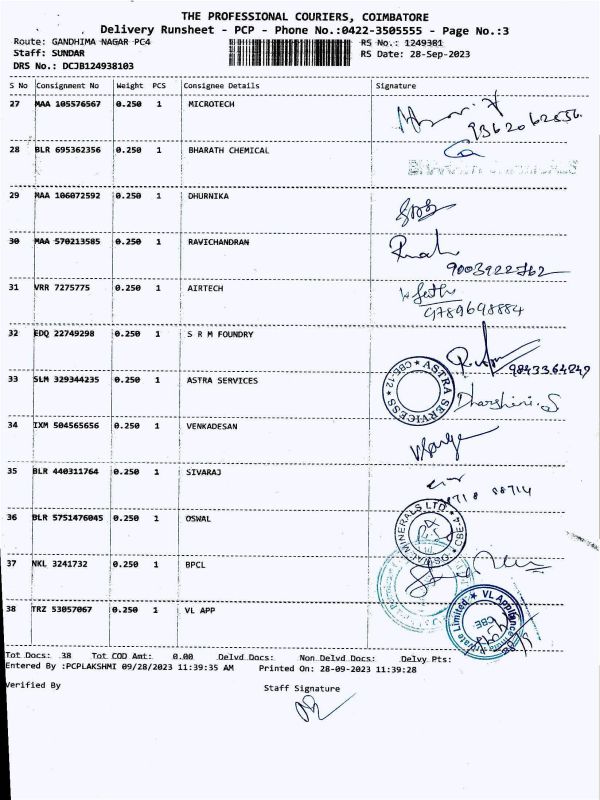 THE PROFESSIONAL COURIERS, COIMBATORE
Delivery Runsheet - PCP - Phone No.:0422-3505555 - Page No.:3
Route: GANDHIMA NAGAR PC4 RS No.: 1249381
Staff: SUNDAR RS Date: 28-Sep-2023
DRS No.: DCJB124938103
S No Consignment No Weight PCS Consignee Details Signature
27 MAA 105576567 0.250 1 MICROTECH
9362062556.
28 BLR 695362356 0.250 1 BHARATH CHEMICAL
BHARATH CHEMICALS
29 MAA 106072592 0.250 1 DHURNIKA
30 MAA 570213585 0.250 1 RAVICHANDRAN
9003922762
31 VRR 7275775 0.250 1 AIRTECH
9789698884
32 EDQ 22749298 0.250 1 S R M FOUNDRY
9843364249
33 SLM 329344235 0.250 1 ASTRA SERVICES
ASTRA SERVICESS CBE-12
Dharshini.S
34 IXM 504565656 0.250 1 VENKADESAN
35 BLR 440311764 0.250 1 SIVARAJ
88714
36 BLR 5751476045 0.250 1 OSWAL
OSWAL MINERALS LTD. CBE-4
37 NKL 3241732 0.250 1 BPCL
38 TRZ 53057067 0.250 1 VL APP
VL Appliance Private Limited CBE
Tot Docs: 38 Tot COD Amt: 0.00 Delvd Docs: Non Delvd Docs: Delvy Pts:
Entered By :PCPLAKSHMI 09/28/2023 11:39:35 AM Printed On: 28-09-2023 11:39:28
Verified By Staff Signature